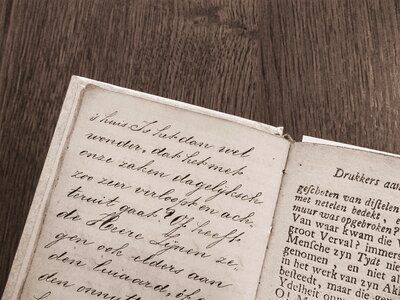 's huis Is het dan wel
wonder, dat het met
onze zaken dagelyksch
zoo zeer verloopt en ach-
teruit gaat? Gy heeft
de Heere Zynen ze-
gen ook elders aan
den luiaard of aan
den onnutten
Drukkers aan
geschoten van distelen
met netelen bedekt, e
muur was opgebroken?
Van waar kwam die V
groot Verval? immers
Mensche zyn Tydt niet
genomen, en niet al
in het werk van zyn Ak
besteedt, maar die ge
Ydelheit
O! Me